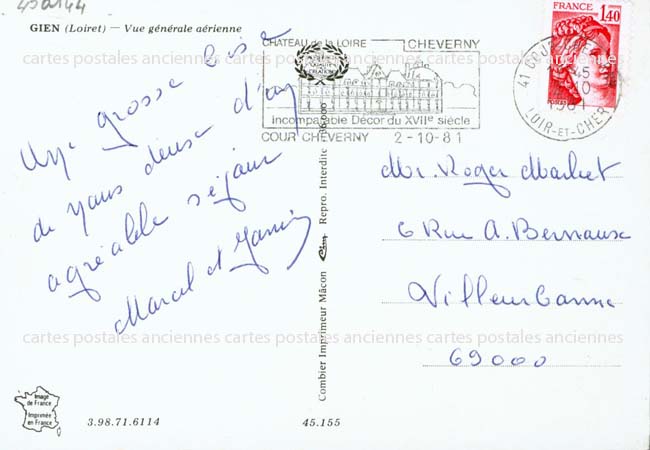 450144
GIEN (Loiret) — Vue générale aérienne
FRANCE
1,40
POSTES
CHATEAU de la LOIRE CHEVERNY
incomparable Décor du XVIIe siècle
COUR CHEVERNY 2-10-81
41 COUR
LOIR-ET-CHER
Une grosse bise
de nous deux
agréable séjour
Marcel et
Mr. Roger
6 Rue A.
Villeurbanne
69000
Combier Imprimeur Mâcon Cim Repro. Interdite
cartes postales anciennes cartes postales anciennes cartes postales anciennes
Image
de France
Imprimée
en France
3.98.71.6114
45.155